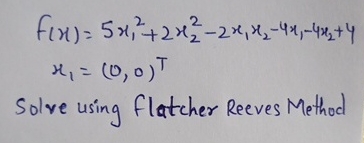 f(x) = 5x₁² + 2x₂² - 2x₁x₂ - 4x₁ - 4x₂ + 4
x₁ = (0, 0)ᵀ
Solve using Flatcher Reeves Method